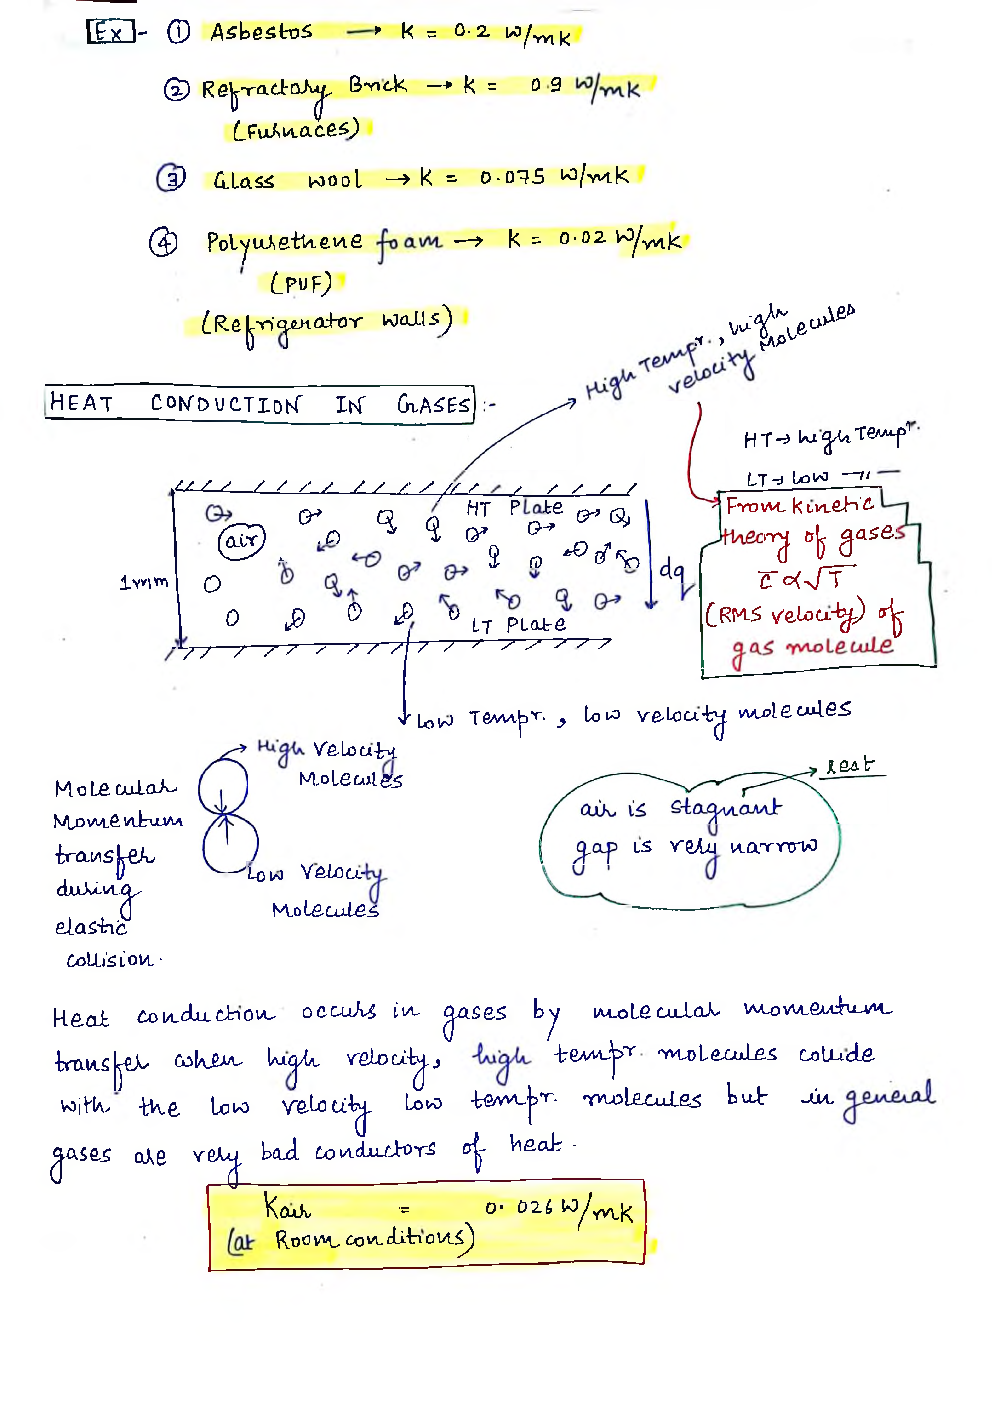 Ex :- ① Asbestos → K = 0.2 W/mK
② Refractory Brick → K = 0.9 W/mK
(Furnaces)
③ Glass wool → K = 0.075 W/mK
④ Polyurethene foam → K = 0.02 W/mK
(PUF)
(Refrigerator walls)
High Tempr., high
velocity Molecules
HEAT CONDUCTION IN GASES :-
HT → high Tempr.
LT → Low —〃—
HT Plate
air
1mm
dq
LT Plate
From kinetic
theory of gases
C̅ ∝ √T
(RMS velocity) of
gas molecule
Low Tempr., low velocity molecules
High Velocity
Molecules
Molecular
Momentum
transfer
during
elastic
collision.
Low Velocity
Molecules
rest
air is stagnant
gap is very narrow
Heat conduction occurs in gases by molecular momentum
transfer when high velocity, high tempr. molecules collide
with the low velocity low tempr. molecules but in general
gases are very bad conductors of heat.
Kair = 0.026 W/mK
(at Room conditions)